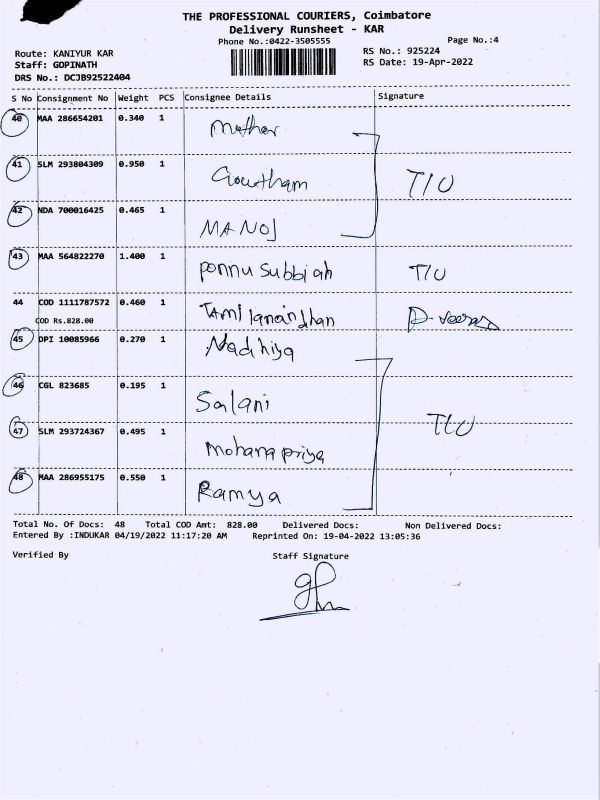 THE PROFESSIONAL COURIERS, Coimbatore
Delivery Runsheet - KAR
Phone No.:0422-3505555
Page No.:4
Route: KANIYUR KAR
RS No.: 925224
Staff: GOPINATH
RS Date: 19-Apr-2022
DRS No.: DCJB92522404
S No Consignment No Weight PCS Consignee Details Signature
40 MAA 286654201 0.340 1 Mother
41 SLM 293804309 0.950 1 Goutham T/U
42 NDA 700016425 0.465 1 MANOJ
43 MAA 564822270 1.400 1 Ponnu Subbiah T/U
44 COD 1111787572 0.460 1
COD Rs.828.00
45 DPI 10085966 0.270 1 Nadhiya
46 CGL 823685 0.195 1 Salani
T/U
47 SLM 293724367 0.495 1 Mohana priya
48 MAA 286955175 0.550 1 Ramya
Total No. Of Docs: 48 Total COD Amt: 828.00 Delivered Docs: Non Delivered Docs:
Entered By :INDUKAR 04/19/2022 11:17:20 AM Reprinted On: 19-04-2022 13:05:36
Verified By Staff Signature